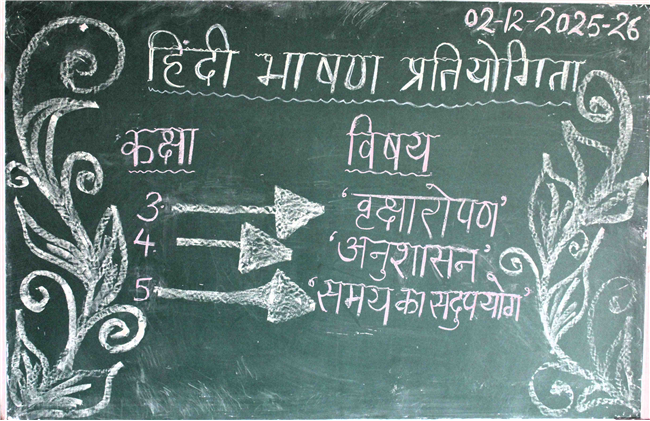 02-12-2025-26
हिंदी भाषण प्रतियोगिता
कक्षा विषय
3 'वृक्षारोपण'
4 'अनुशासन'
5 'समय का सदुपयोग'